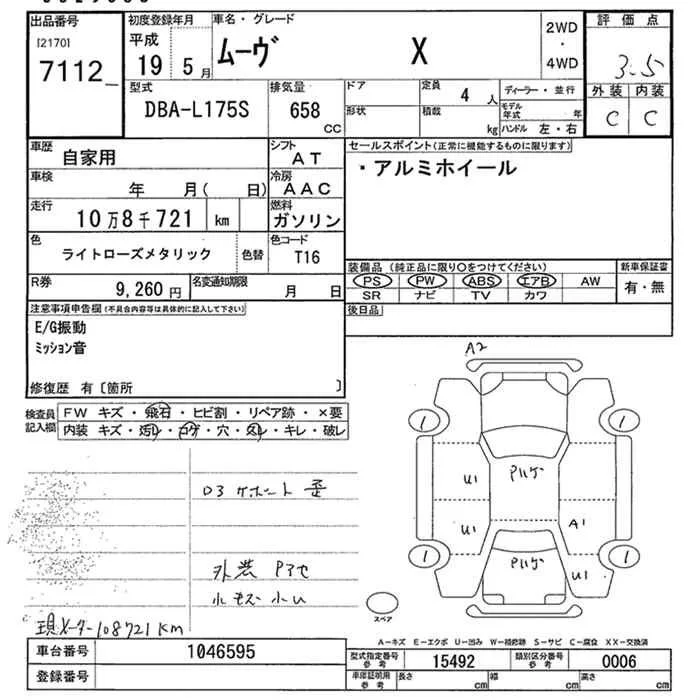 出品番号
[2170]
7112
初度登録年月
平成
19 5月
車名・グレード
ムーヴ X
2WD
・
4WD
評価点
3.5
外装 内装
C C
型式
DBA-L175S
排気量
658
CC
ドア
形状
定員
4 人
積載
kg
ディーラー・並行
モデル年式 年
ハンドル 左・右
車歴
自家用
シフト
AT
車検
年 月( 日)
冷房
AAC
走行
10万8千721 km
燃料
ガソリン
色
ライトローズメタリック
色替
色コード
T16
R券
9,260円
名変通知期限
月 日
セールスポイント(正常に機能するものに限ります)
・アルミホイール
装備品 (純正品に限り○をつけてください)
PS PW ABS エアB AW
SR ナビ TV カワ
新車保証書
有・無
後日品
注意事項申告欄(不具合内容等は具体的に記入して下さい)
E/G振動
ミッション音
修復歴 有〔箇所 〕
検査員
記入欄
FW キズ・飛石・ヒビ割・リペア跡・×要
内装 キズ・汚レ・コゲ・穴・スレ・キレ・破レ
A2
1 1
Pハゲ
U1
U1 A1
1 1
Pハゲ
U1
スペア
外装
小キズ 小U
現メーター108721KM
A−キズ E−エクボ U−凹み W−補修跡 S−サビ C−腐食 XX−交換済
車台番号
1046595
登録番号
型式指定番号
参考
15492
類別区分番号
参考
0006
車庫証明用
参考
長さ cm
幅 cm
高さ cm